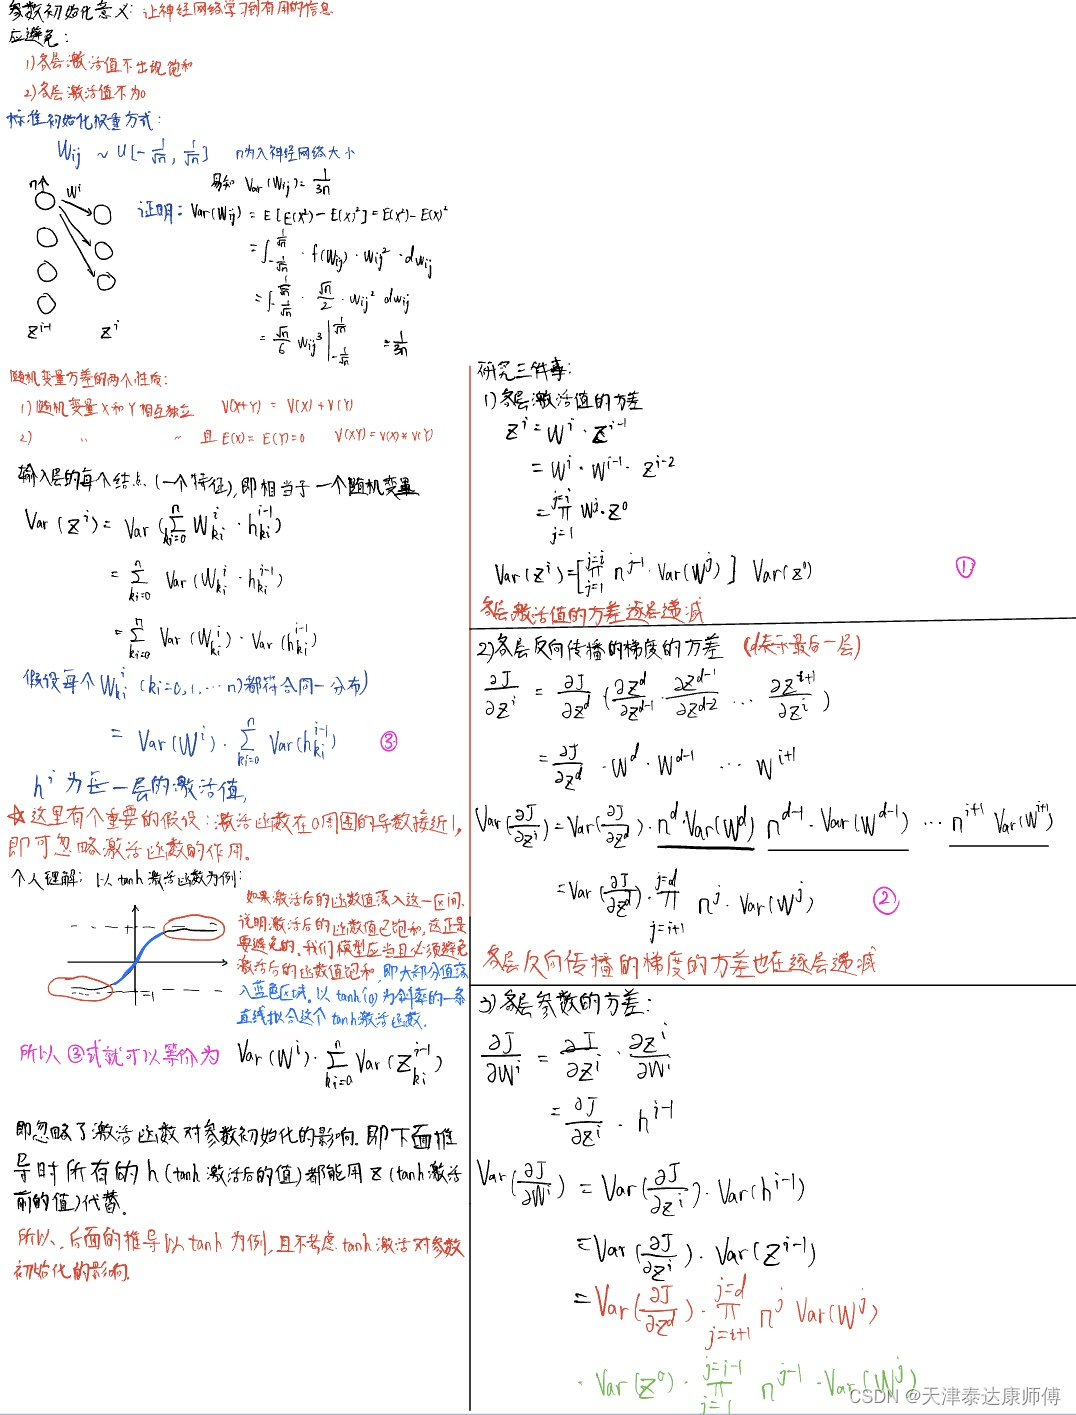 参数初始化意义: 让神经网络学习到有用的信息
应避免:
1)各层激活值不出现饱和
2)各层激活值不为0
标准初始化权重方式:
Wij ~ U[-1/√n, 1/√n] n为入神经网络大小
易知 Var(Wij)=1/3n
n W^i
证明: Var(Wij) = E[E(X²)-E(X)²] = E(X²)-E(X)²
=∫_{-1/√n}^{1/√n} · f(Wij) · Wij² · dwij
=∫_{-1/√n}^{1/√n} · √n/2 · Wij² dwij
= √n/6 Wij³ |_{-1/√n}^{1/√n} = 1/3n
Z^{i-1} Z^i
随机变量方差的两个性质:
1)随机变量X和Y相互独立 V(X+Y) = V(X)+V(Y)
2) 〃 〃 且E(X)=E(Y)=0 V(XY)=V(X)*V(Y)
输入层的每个结点(一个特征),即相当于一个随机变量
Var(Z^i) = Var(∑_{ki=0}^{n} W_{ki}^i · h_{ki}^{i-1})
= ∑_{ki=0}^{n} Var(W_{ki}^i · h_{ki}^{i-1})
= ∑_{ki=0}^{n} Var(W_{ki}^i) · Var(h_{ki}^{i-1})
假设每个W_{ki}^i (ki=0,1,…n)都符合同一分布)
= Var(W^i) · ∑_{ki=0}^{n} Var(h_{ki}^{i-1}) ③
h^i 为每一层的激活值,
☆这里有个重要的假设:激活函数在0周围的导数接近1,
即可忽略激活函数的作用。
个人理解: 以tanh激活函数为例:
如果激活后的函数值落入这一区间,
说明激活后的函数值已饱和,这正是
要避免的。我们模型应当且必须避免
激活后的函数值饱和,即大部分值落
入蓝色区域。以tanh(0)为斜率的一条
直线拟合这个tanh激活函数.
-1
所以,③式就可以等价为 Var(W^i) · ∑_{ki=0}^{n} Var(Z_{ki}^{i-1})
即忽略了激活函数对参数初始化的影响.即下面推
导时所有的h(tanh激活后的值)都能用z(tanh激活
前的值)代替.
所以,后面的推导以tanh为例,且不考虑tanh激活对参数
初始化的影响.
研究三件事:
1)各层激活值的方差
Z^i = W^i · Z^{i-1}
= W^i · W^{i-1} · Z^{i-2}
= ∏_{j=1}^{j=i} W^j · Z^0
Var(Z^i)=[∏_{j=1}^{j=i} n^{j-1} · Var(W^j)] Var(Z^0) ①
各层激活值的方差逐层递减
2)各层反向传播的梯度的方差 (d表示最后一层)
∂J/∂Z^i = ∂J/∂Z^d (∂Z^d/∂Z^{d-1} · ∂Z^{d-1}/∂Z^{d-2} … ∂Z^{i+1}/∂Z^i)
= ∂J/∂Z^d · W^d · W^{d-1} … W^{i+1}
Var(∂J/∂Z^i) = Var(∂J/∂Z^d) · n^d·Var(W^d) n^{d-1}·Var(W^{d-1}) … n^{i+1} Var(W^{i+1})
=Var(∂J/∂Z^d) · ∏_{j=i+1}^{j=d} n^j · Var(W^j) ②
各层反向传播的梯度的方差也在逐层递减
3)各层参数的方差:
∂J/∂W^i = ∂J/∂Z^i · ∂Z^i/∂W^i
= ∂J/∂Z^i · h^{i-1}
Var(∂J/∂W^i) = Var(∂J/∂Z^i) · Var(h^{i-1})
=Var(∂J/∂Z^i) · Var(Z^{i-1})
=Var(∂J/∂Z^d) · ∏_{j=i+1}^{j=d} n^j Var(W^j)
· Var(Z^0) · ∏_{j=1}^{j=i-1} n^{j-1} · Var(W^j)
CSDN @天津泰达康师傅